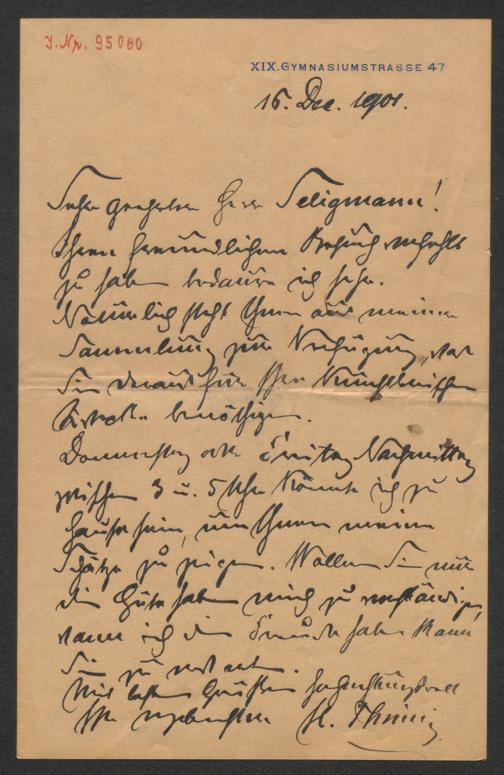 J. Nr. 95060
XIX. GYMNASIUMSTRASSE 47
16. Dec. 1901.
Sehr geehrter Herr Seligmann!
Ihren freundlichen Besuch verfehlt
zu haben bedaure ich sehr.
Natürlich steht Ihnen aus meiner
Sammlung zur Verfügung, was
Sie daraus für Ihre künstlerischen
Zwecke benöthigen.
Donnerstag oder Freitag Nachmittag
zwischen 3 u. 5 Uhr könnte ich zu
Hause sein, um Ihnen meine
Schätze zu zeigen. Wollen Sie nur
die Güte haben mich zu verständigen,
wann ich die Freude haben kann
Sie zu erwarten.
Mit besten Grüßen hochachtungsvoll
Ihr ergebenster H. Thimig